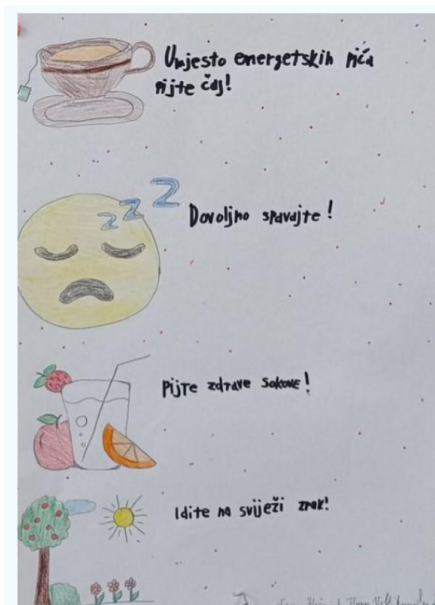 Umjesto energetskih pića
pijte čaj!
Z Z Z
Dovoljno spavajte!
Pijte zdrave sokove!
Idite na svijež̌i zrak!